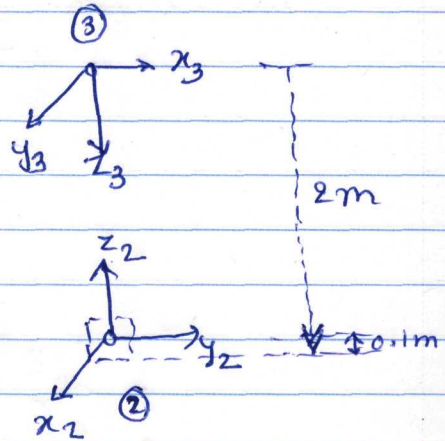 ③
x₃
y₃
z₃
2m
z₂
y₂
0.1m
x₂
②